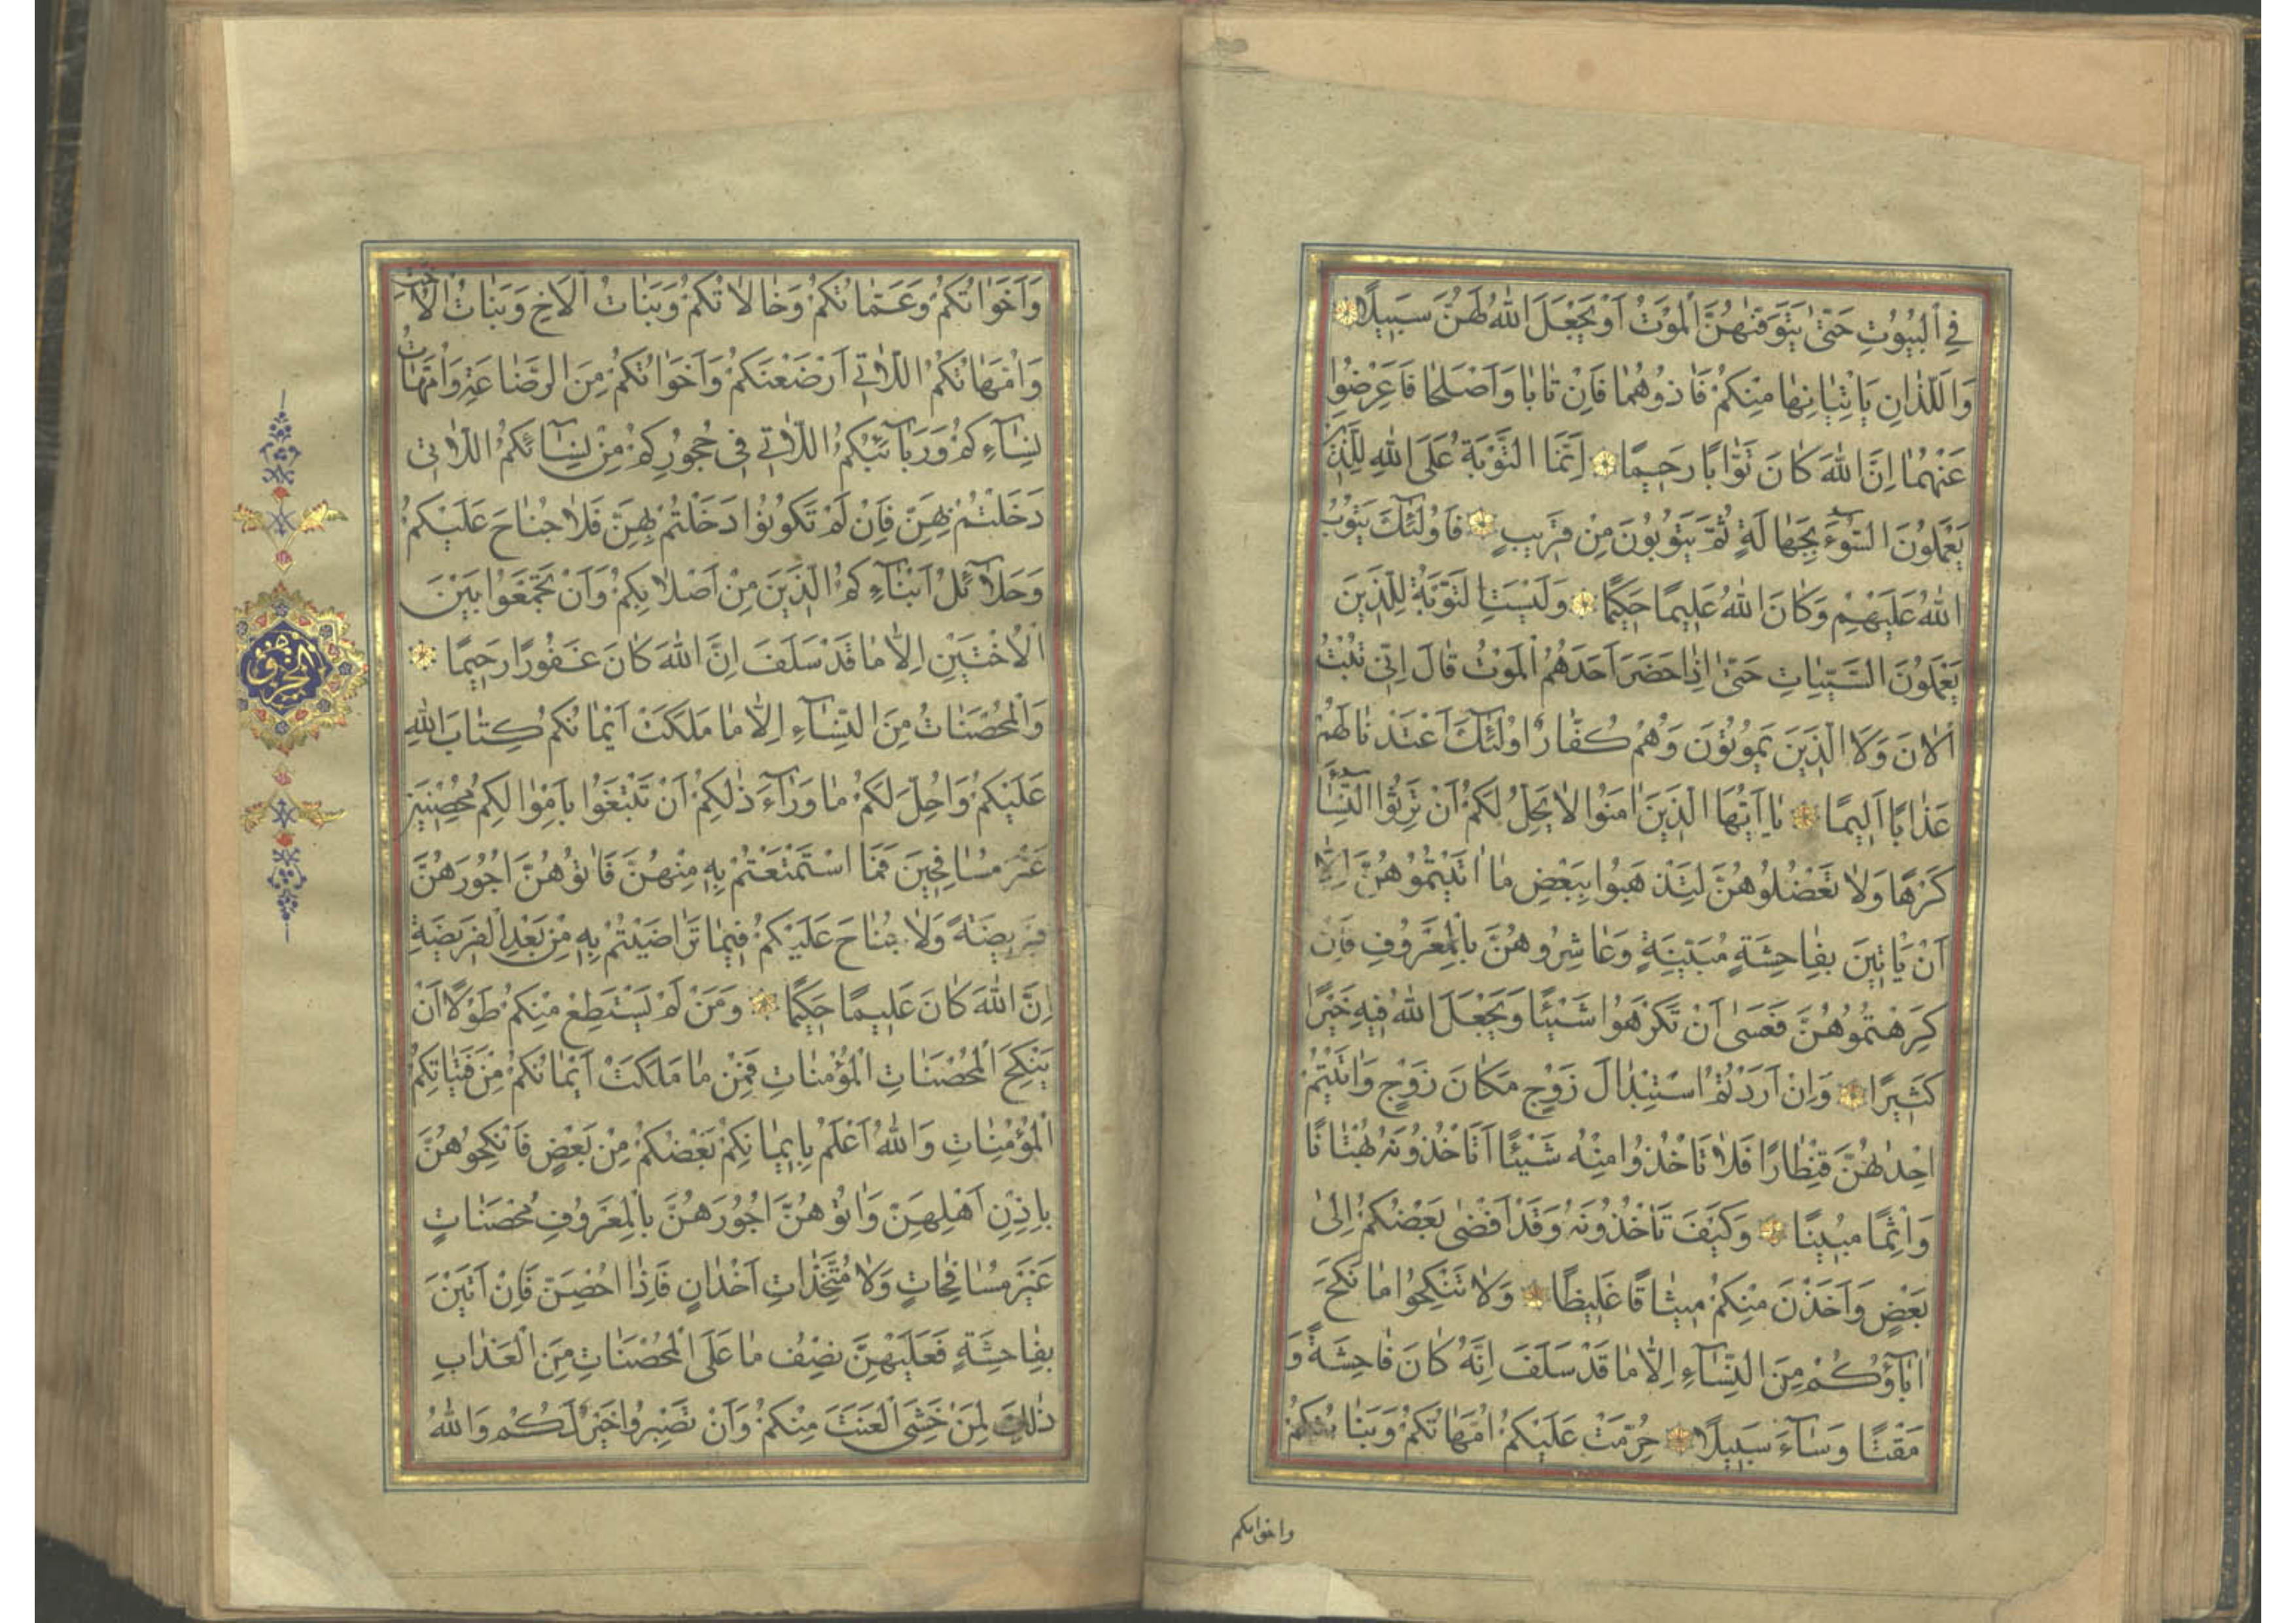 فِي الْبُيُوتِ حَتّٰى يَتَوَفّٰيهُنَّ الْمَوْتُ اَوْ يَجْعَلَ اللّٰهُ لَهُنَّ سَبِيلًا
وَالَّلذَانِ يَاْتِيَانِهَا مِنْكُمْ فَاٰذُوهُمَا فَاِنْ تَابَا وَاَصْلَحَا فَاَعْرِضُوا
عَنْهُمَا اِنَّ اللّٰهَ كَانَ تَوَّابًا رَحِيمًا اِنَّمَا التَّوْبَةُ عَلَى اللّٰهِ لِلَّذِينَ
يَعْمَلُونَ السُّوۤءَ بِجَهَالَةٍ ثُمَّ يَتُوبُونَ مِنْ قَرِيبٍ فَاُولٰۤئِكَ يَتُوبُ
اللّٰهُ عَلَيْهِمْ وَكَانَ اللّٰهُ عَلِيمًا حَكِيمًا وَلَيْسَتِ التَّوْبَةُ لِلَّذِينَ
يَعْمَلُونَ السَّيِّئَاتِ حَتّٰى اِذَا حَضَرَ اَحَدَهُمُ الْمَوْتُ قَالَ اِنِّي تُبْتُ
الْاٰنَ وَلَا الَّذِينَ يَمُوتُونَ وَهُمْ كُفَّارٌ اُولٰۤئِكَ اَعْتَدْنَا لَهُمْ
عَذَابًا اَلِيمًا يَا اَيُّهَا الَّذِينَ اٰمَنُوا لَا يَحِلُّ لَكُمْ اَنْ تَرِثُوا النِّسَاۤءَ
كَرْهًا وَلَا تَعْضُلُوهُنَّ لِتَذْهَبُوا بِبَعْضِ مَا اٰتَيْتُمُوهُنَّ اِلَّا
اَنْ يَاْتِينَ بِفَاحِشَةٍ مُبَيِّنَةٍ وَعَاشِرُوهُنَّ بِالْمَعْرُوفِ فَاِنْ
كَرِهْتُمُوهُنَّ فَعَسٰى اَنْ تَكْرَهُوا شَيْئًا وَيَجْعَلَ اللّٰهُ فِيهِ خَيْرًا
كَثِيرًا وَاِنْ اَرَدْتُمُ اسْتِبْدَالَ زَوْجٍ مَكَانَ زَوْجٍ وَاٰتَيْتُمْ
اِحْدٰيهُنَّ قِنْطَارًا فَلَا تَاْخُذُوا مِنْهُ شَيْئًا اَتَاْخُذُونَهُ بُهْتَانًا
وَاِثْمًا مُبِينًا وَكَيْفَ تَاْخُذُونَهُ وَقَدْ اَفْضٰى بَعْضُكُمْ اِلٰى
بَعْضٍ وَاَخَذْنَ مِنْكُمْ مِيثَاقًا غَلِيظًا وَلَا تَنْكِحُوا مَا نَكَحَ
اٰبَاۤؤُكُمْ مِنَ النِّسَاۤءِ اِلَّا مَا قَدْ سَلَفَ اِنَّهُ كَانَ فَاحِشَةً وَ
مَقْتًا وَسَاۤءَ سَبِيلًا حُرِّمَتْ عَلَيْكُمْ اُمَّهَاتُكُمْ وَبَنَاتُكُمْ
واخواتكم
وَاَخَوَاتُكُمْ وَعَمَّاتُكُمْ وَخَالَاتُكُمْ وَبَنَاتُ الْاَخِ وَبَنَاتُ الْاُخْتِ
وَاُمَّهَاتُكُمُ اللَّاتِي اَرْضَعْنَكُمْ وَاَخَوَاتُكُمْ مِنَ الرَّضَاعَةِ وَاُمَّهَاتُ
نِسَاۤءِكُمْ وَرَبَاۤئِبُكُمُ اللَّاتِي فِي حُجُورِكُمْ مِنْ نِسَاۤئِكُمُ اللَّاتِي
دَخَلْتُمْ بِهِنَّ فَاِنْ لَمْ تَكُونُوا دَخَلْتُمْ بِهِنَّ فَلَا جُنَاحَ عَلَيْكُمْ
وَحَلَاۤئِلُ اَبْنَاۤءِكُمُ الَّذِينَ مِنْ اَصْلَابِكُمْ وَاَنْ تَجْمَعُوا بَيْنَ
الْاُخْتَيْنِ اِلَّا مَا قَدْ سَلَفَ اِنَّ اللّٰهَ كَانَ غَفُورًا رَحِيمًا
وَالْمُحْصَنَاتُ مِنَ النِّسَاۤءِ اِلَّا مَا مَلَكَتْ اَيْمَانُكُمْ كِتَابَ اللّٰهِ
عَلَيْكُمْ وَاُحِلَّ لَكُمْ مَا وَرَاۤءَ ذٰلِكُمْ اَنْ تَبْتَغُوا بِاَمْوَالِكُمْ مُحْصِنِينَ
غَيْرَ مُسَافِحِينَ فَمَا اسْتَمْتَعْتُمْ بِهِ مِنْهُنَّ فَاٰتُوهُنَّ اُجُورَهُنَّ
فَرِيضَةً وَلَا جُنَاحَ عَلَيْكُمْ فِيمَا تَرَاضَيْتُمْ بِهِ مِنْ بَعْدِ الْفَرِيضَةِ
اِنَّ اللّٰهَ كَانَ عَلِيمًا حَكِيمًا وَمَنْ لَمْ يَسْتَطِعْ مِنْكُمْ طَوْلًا اَنْ
يَنْكِحَ الْمُحْصَنَاتِ الْمُؤْمِنَاتِ فَمِنْ مَا مَلَكَتْ اَيْمَانُكُمْ مِنْ فَتَيَاتِكُمُ
الْمُؤْمِنَاتِ وَاللّٰهُ اَعْلَمُ بِاِيمَانِكُمْ بَعْضُكُمْ مِنْ بَعْضٍ فَانْكِحُوهُنَّ
بِاِذْنِ اَهْلِهِنَّ وَاٰتُوهُنَّ اُجُورَهُنَّ بِالْمَعْرُوفِ مُحْصَنَاتٍ
غَيْرَ مُسَافِحَاتٍ وَلَا مُتَّخِذَاتِ اَخْدَانٍ فَاِذَا اُحْصِنَّ فَاِنْ اَتَيْنَ
بِفَاحِشَةٍ فَعَلَيْهِنَّ نِصْفُ مَا عَلَى الْمُحْصَنَاتِ مِنَ الْعَذَابِ
ذٰلِكَ لِمَنْ خَشِيَ الْعَنَتَ مِنْكُمْ وَاَنْ تَصْبِرُوا خَيْرٌ لَكُمْ وَاللّٰهُ